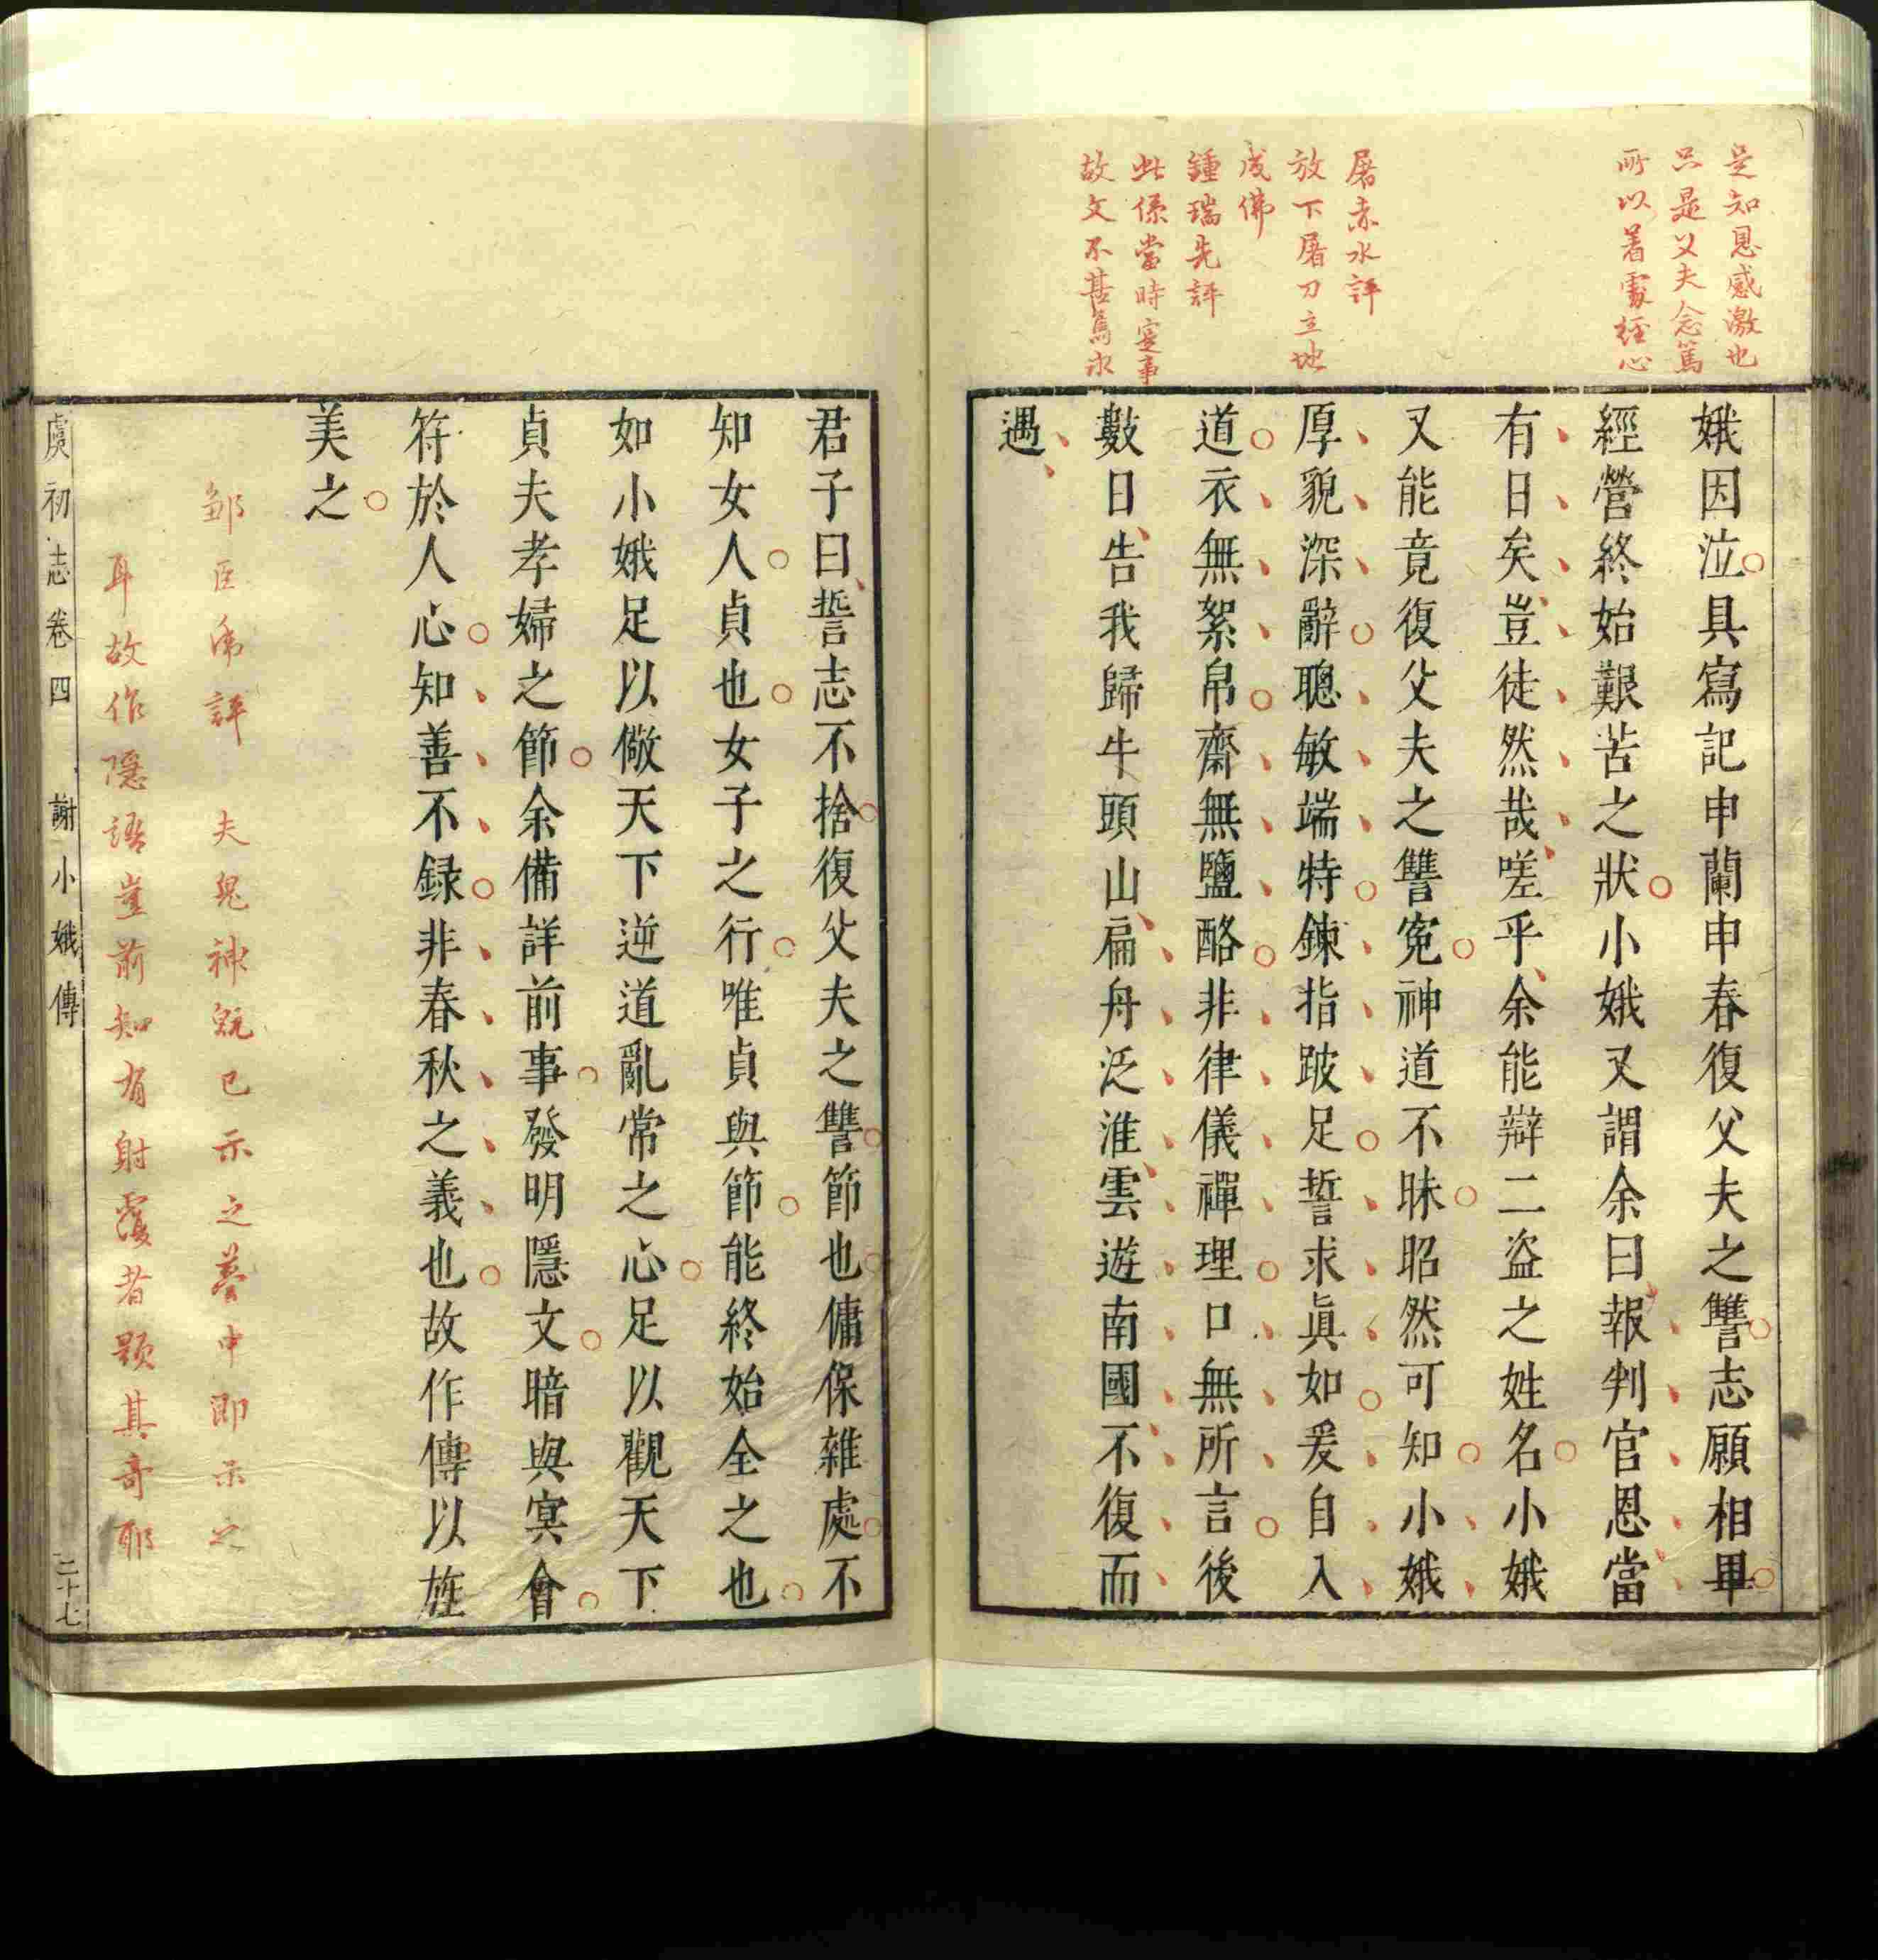 是知恩感激也
只是父夫念篤
所以着處經心
屠赤水評
放下屠刀立地
成佛
鍾瑞先評
此係當時寔事
故文不甚雋永
娥因泣具寫記申蘭申春復父夫之讐志願相畢
經營終始艱苦之狀小娥又謂余曰報判官恩當
有日矣豈徒然哉嗟乎余能辯二盗之姓名小娥
又能竟復父夫之讐寃神道不昧昭然可知小娥
厚貌深辭聰敏端特鍊指跛足誓求眞如爰自入
道衣無絮帛齋無鹽酪非律儀禪理口無所言後
數日告我歸牛頭山扁舟泛淮雲遊南國不復而
遇
君子曰誓志不捨復父夫之讐節也傭保雜處不
知女人貞也女子之行唯貞與節能終始全之也
如小娥足以儆天下逆道亂常之心足以觀天下
貞夫孝婦之節余備詳前事發明隱文暗與冥會
符於人心知善不録非春秋之義也故作傳以旌
美之
鄒臣虎評 夫鬼神既已示之夢中即示之
耳故作隱語豈前知有射覆者顯其奇耶
虞初志卷四 謝小娥傳 二十七